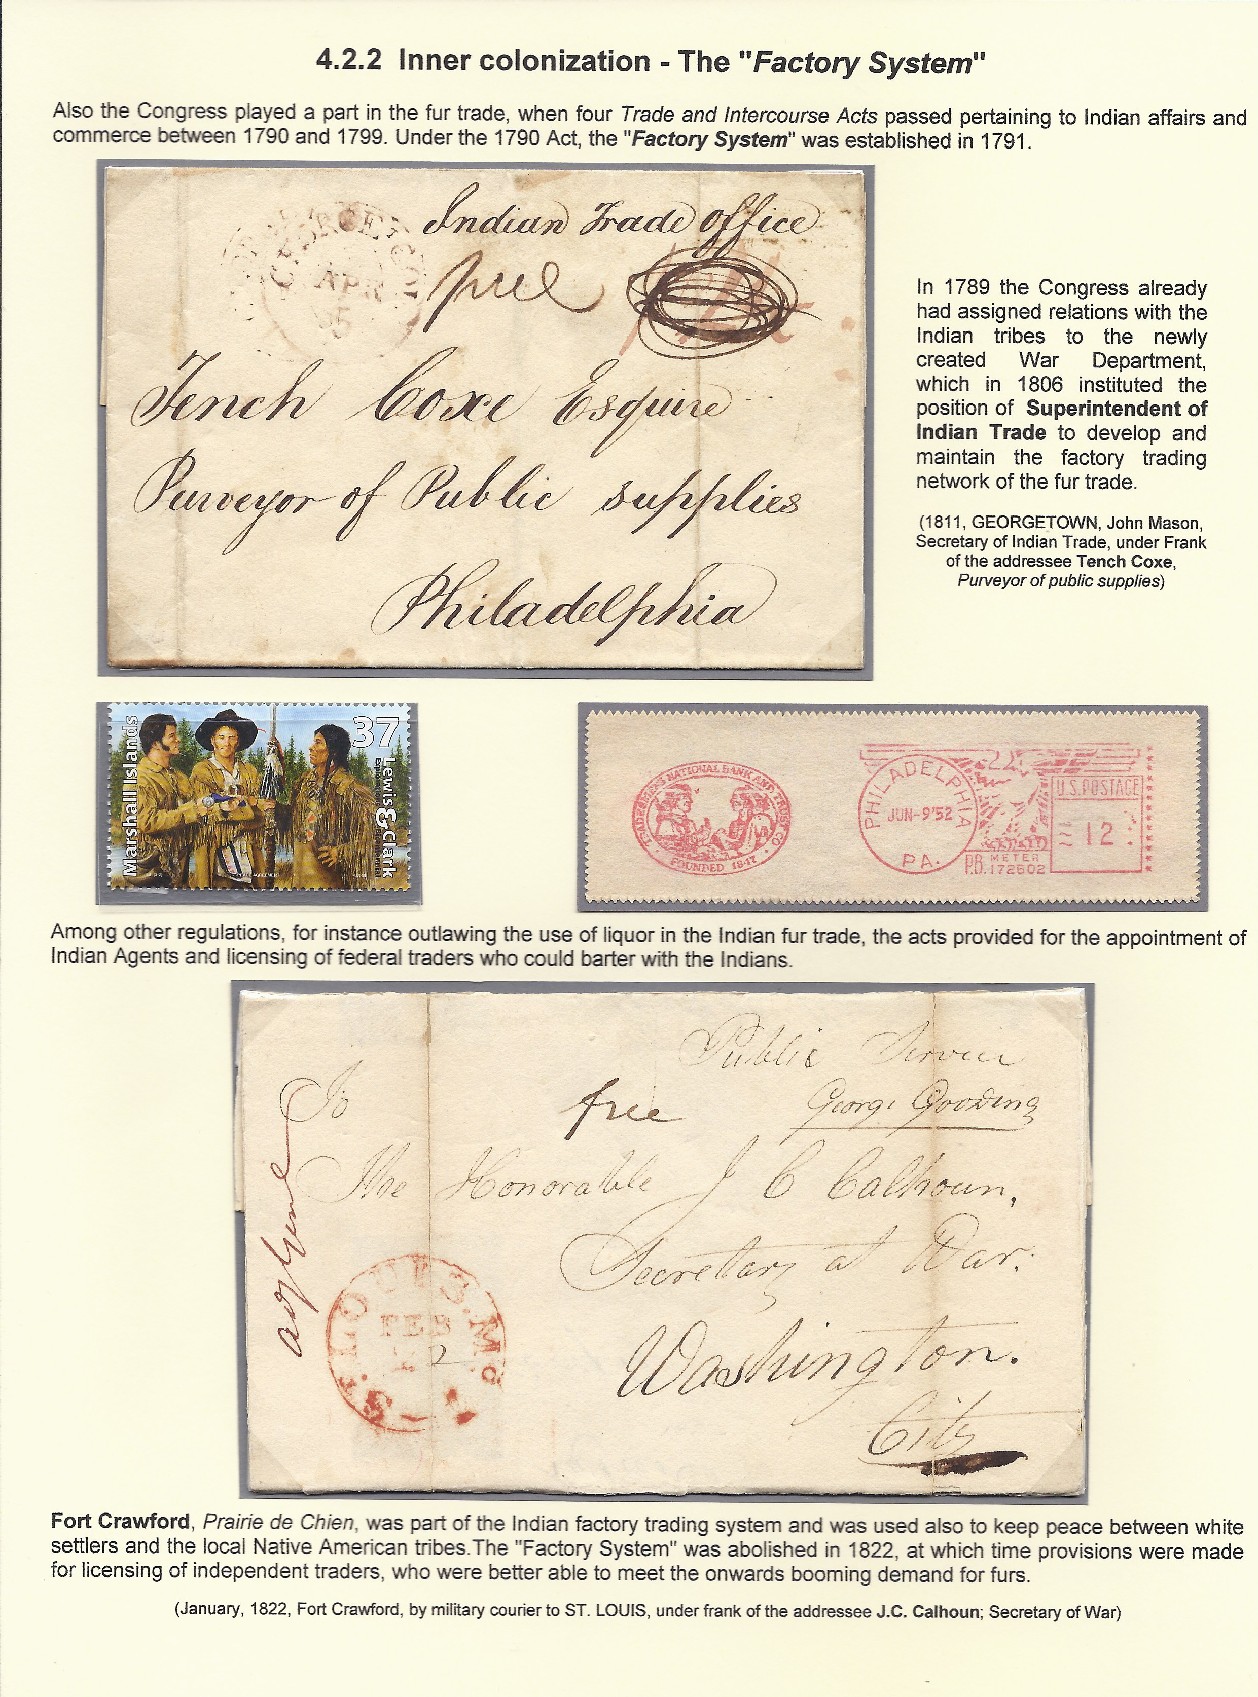 4.2.2 Inner colonization - The "Factory System"
Also the Congress played a part in the fur trade, when four Trade and Intercourse Acts passed pertaining to Indian affairs and
commerce between 1790 and 1799. Under the 1790 Act, the "Factory System" was established in 1791.
Indian Trade Office
GEORGETOWN
APR
free
Tench Coxe Esquire
Purveyor of Public supplies
Philadelphia
In 1789 the Congress already
had assigned relations with the
Indian tribes to the newly
created War Department,
which in 1806 instituted the
position of Superintendent of
Indian Trade to develop and
maintain the factory trading
network of the fur trade.
(1811, GEORGETOWN, John Mason,
Secretary of Indian Trade, under Frank
of the addressee Tench Coxe,
Purveyor of public supplies)
Marshall Islands
37
Lewis & Clark
TRADESMENS NATIONAL BANK AND TRUST CO.
FOUNDED 1847
PHILADELPHIA
JUN-9'52
PA.
U.S. POSTAGE
12
P.B. METER
172602
Among other regulations, for instance outlawing the use of liquor in the Indian fur trade, the acts provided for the appointment of
Indian Agents and licensing of federal traders who could barter with the Indians.
Public Service
To
free
George Gooding
The Honorable J C Calhoun,
Secretary at War.
Washington.
City
ST. LOUIS. Mo
FEB
Fort Crawford, Prairie de Chien, was part of the Indian factory trading system and was used also to keep peace between white
settlers and the local Native American tribes.The "Factory System" was abolished in 1822, at which time provisions were made
for licensing of independent traders, who were better able to meet the onwards booming demand for furs.
(January, 1822, Fort Crawford, by military courier to ST. LOUIS, under frank of the addressee J.C. Calhoun; Secretary of War)